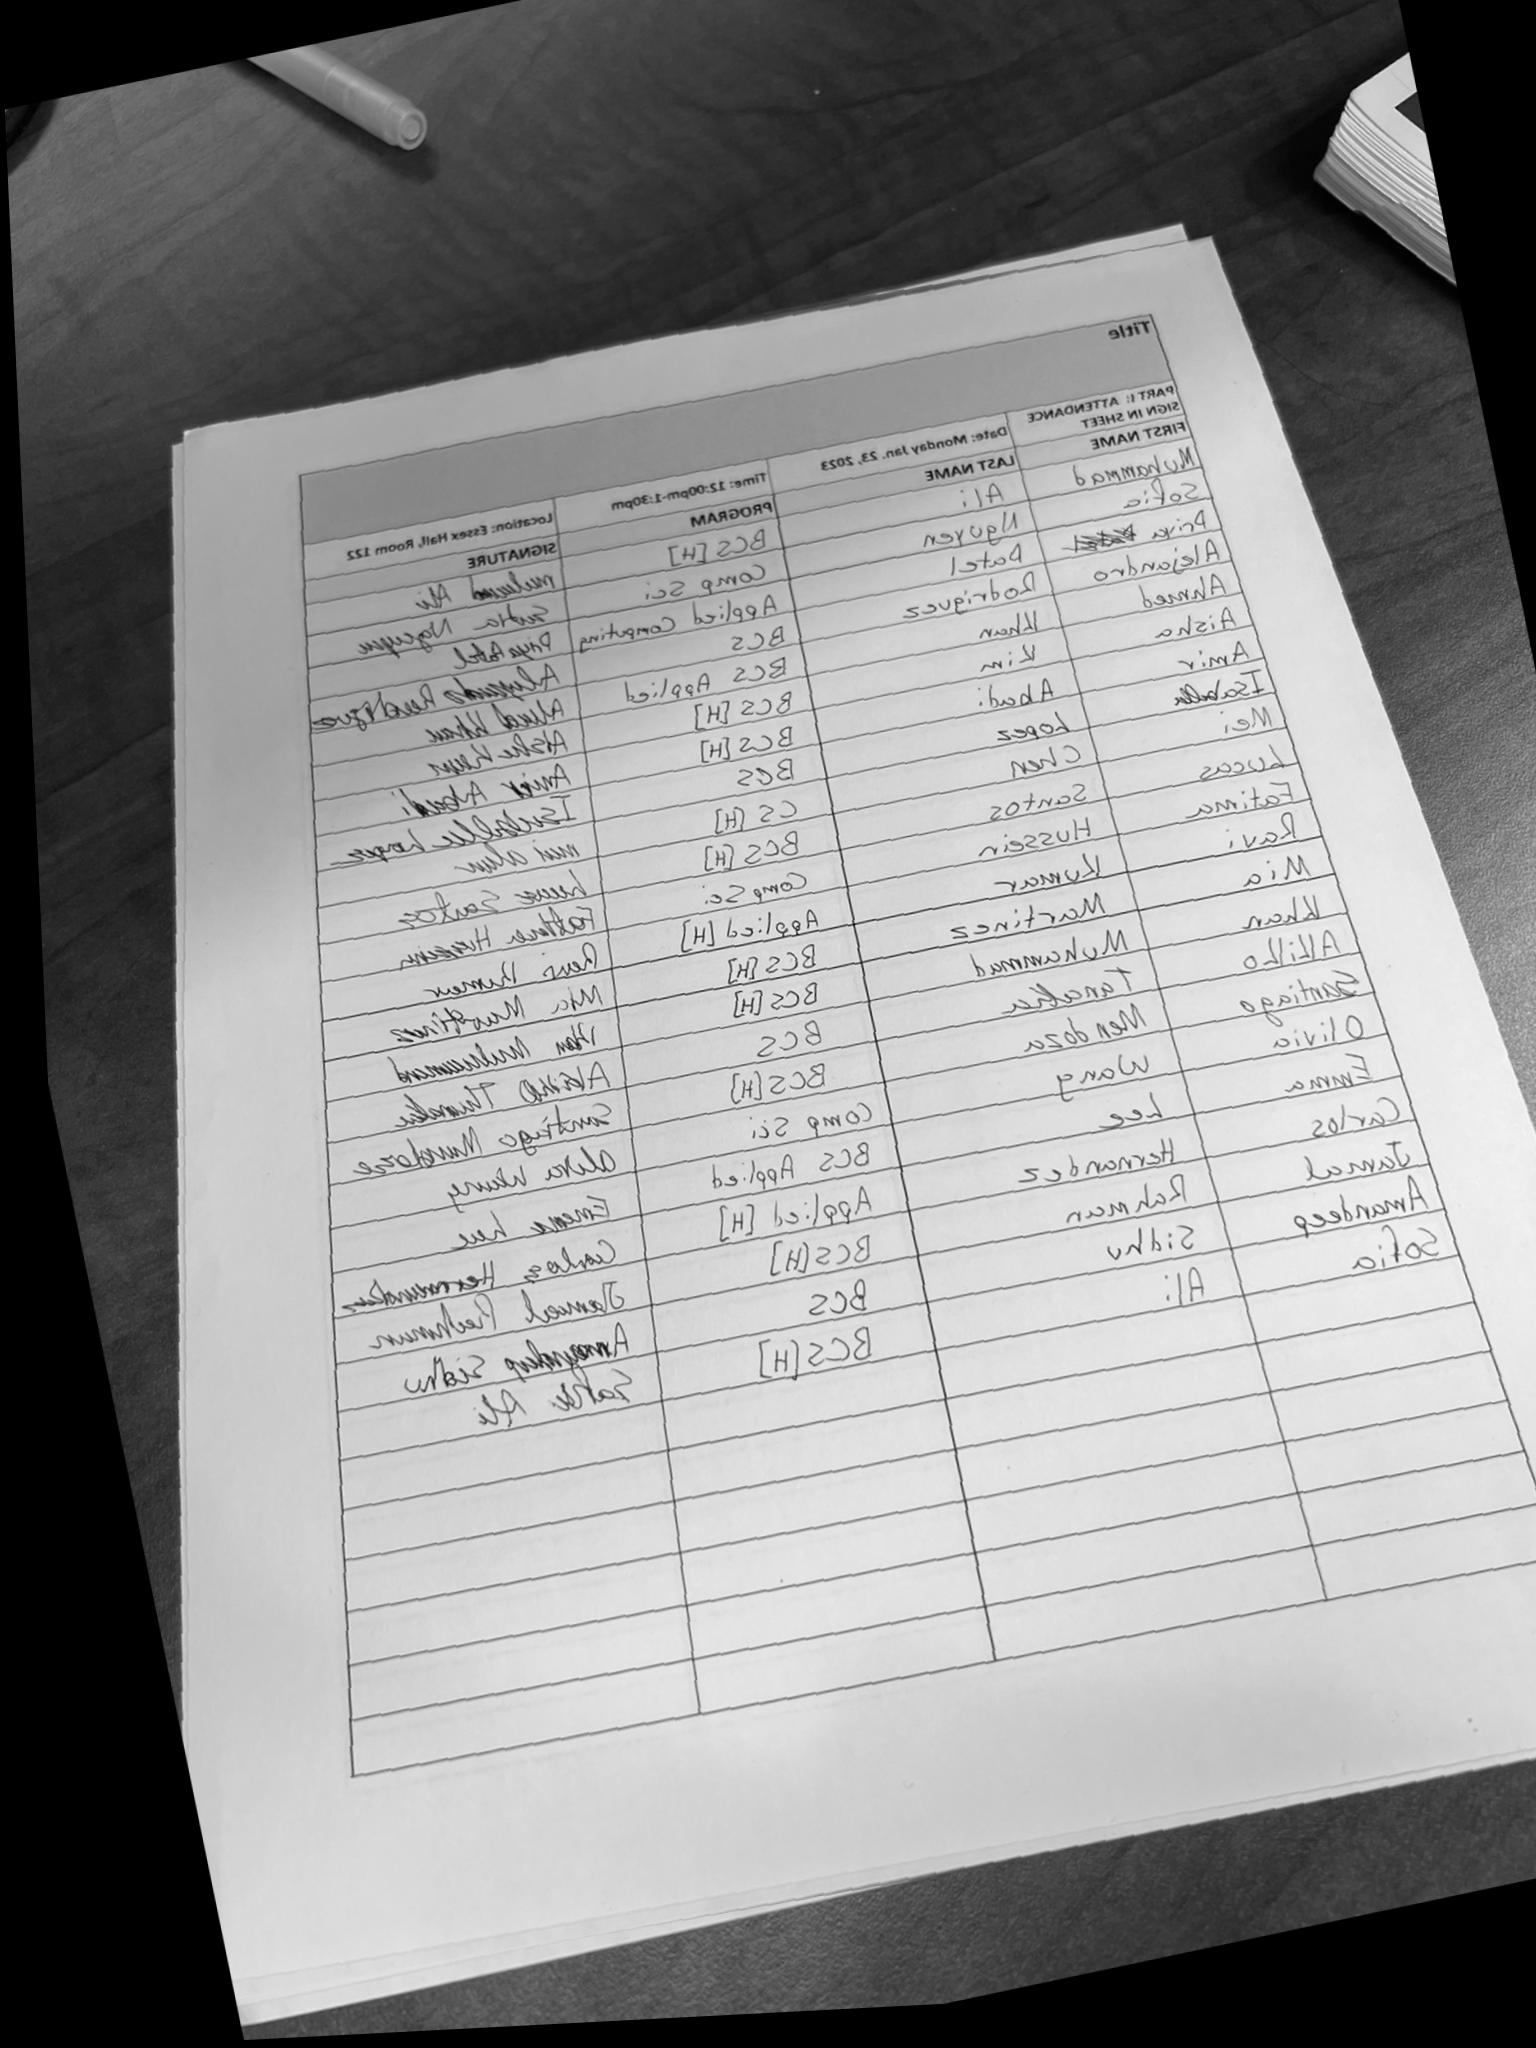 Title
PART I: ATTENDANCE SIGN IN SHEET Date: Monday Jan. 23, 2023 Time: 12:00pm-1:30pm Location: Essex Hall, Room 122
FIRST NAME LAST NAME PROGRAM SIGNATURE
Muhammad Ali BCS [H] Ali
Sofia Nguyen Comp Sci Sofia Nguyen
Priya Patel Applied Computing Priya Patel
Alejandro Rodriguez BCS Alejandro Rodriguez
Ahmed Khan BCS Applied Ahmed Khan
Aisha Kim BCS [H] Aisha
Amir Abadi BCS [H] Amir Abadi
Isabella Lopez BCS Isabella Lopez
Mei Chen CS [H] mei chen
Lucas Santos BCS [H] Lucas Santos
Fatima Hussein Comp Sci Fatima Hussein
Ravi Kumar Applied [H] Ravi Kumar
Mia Martinez BCS [H] Mia Martinez
Khan Muhammad BCS [H] Khan Muhammad
Akihko Tanaka BCS
Santiago Mendoza BCS [H] Santiago Mendoza
Olivia Wang Comp Sci Olivia Wang
Emma Lee BCS Applied Emma Lee
Carlos Hernandez Applied [H] Carlos Hernandez
Jamal Rahman BCS [H] Jamal Rahman
Amandeep Sidhu BCS Amandeep Sidhu
Sofia Ali BCS [H] Sofia Ali